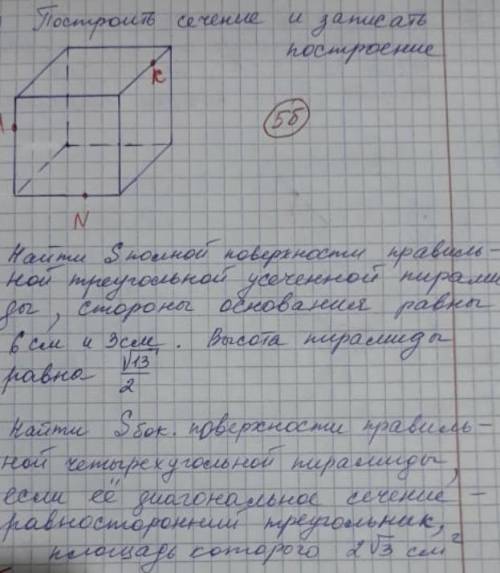 Построить сечение и записать
построение
K
5б
N
Найти S полной поверхности правиль-
ной треугольной усеченной пирами
ды, стороны основания равны
6 см и 3 см. Высота пирамиды
равна √13/2
Найти Sбок. поверхности правиль-
ной четырехугольной пирамиды,
если её диагональное сечение -
равносторонний треугольник,
площадь которого 2√3 см²